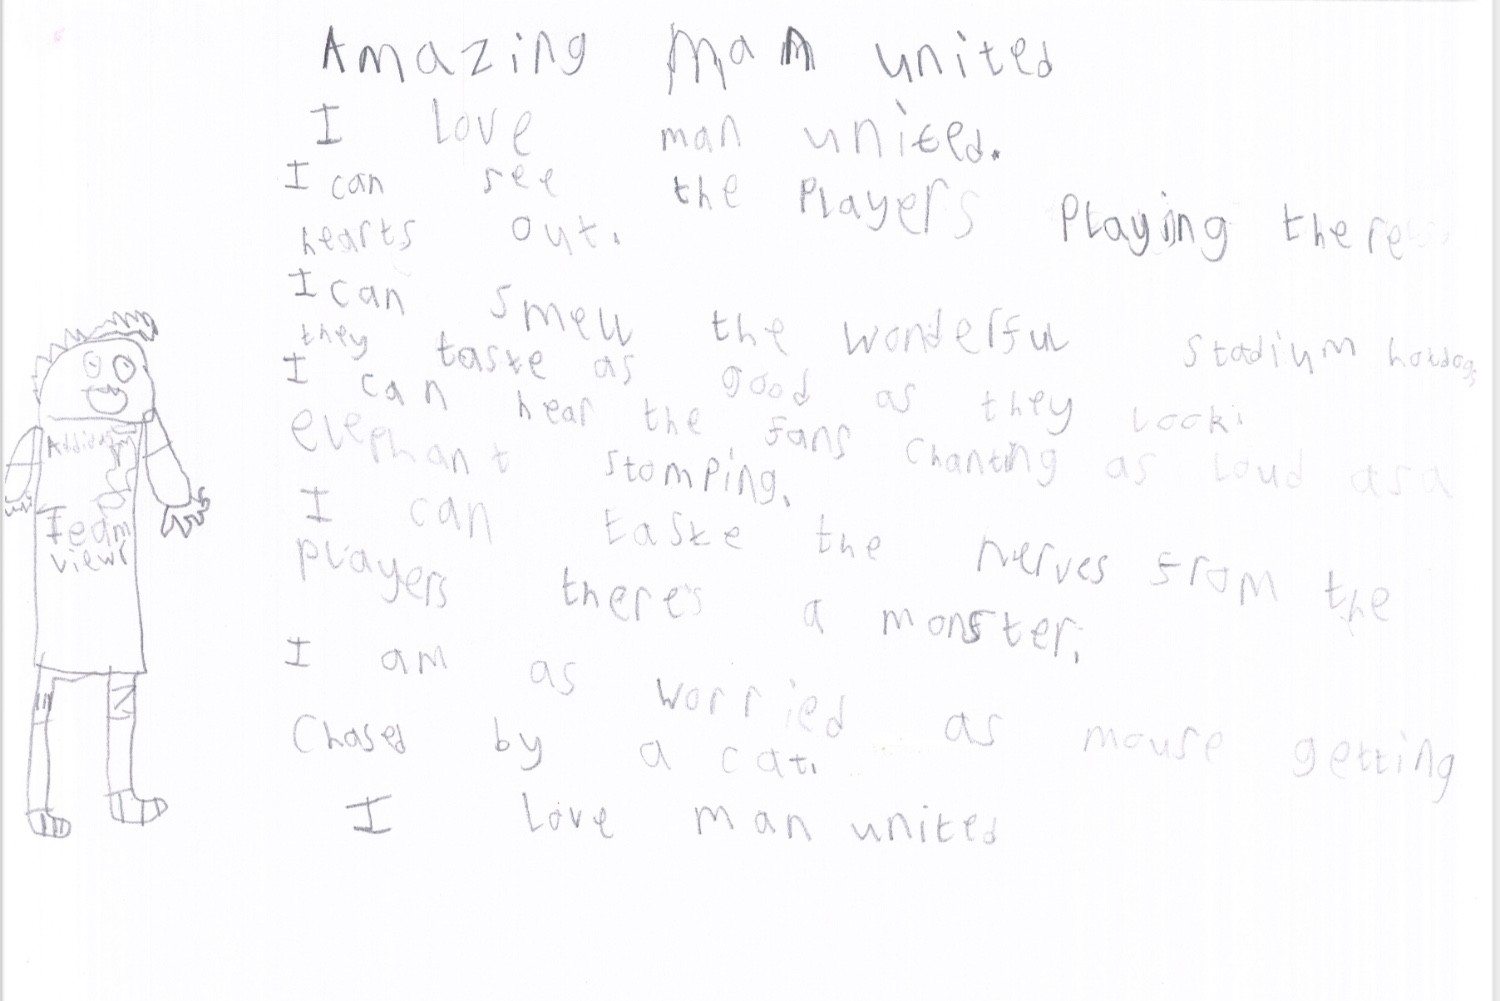 Amazing Man united
I love man united.
I can see the Players Playing there
hearts out.
I can smell the wonderful stadium hotdogs
they taste as good as they look.
I can hear the fans chanting as loud as a
elephant stomping.
I can taste the nerves from the
players there's a monster.
I am as worried as mouse getting
Chased by a cat.
I love man united
Team
viewr